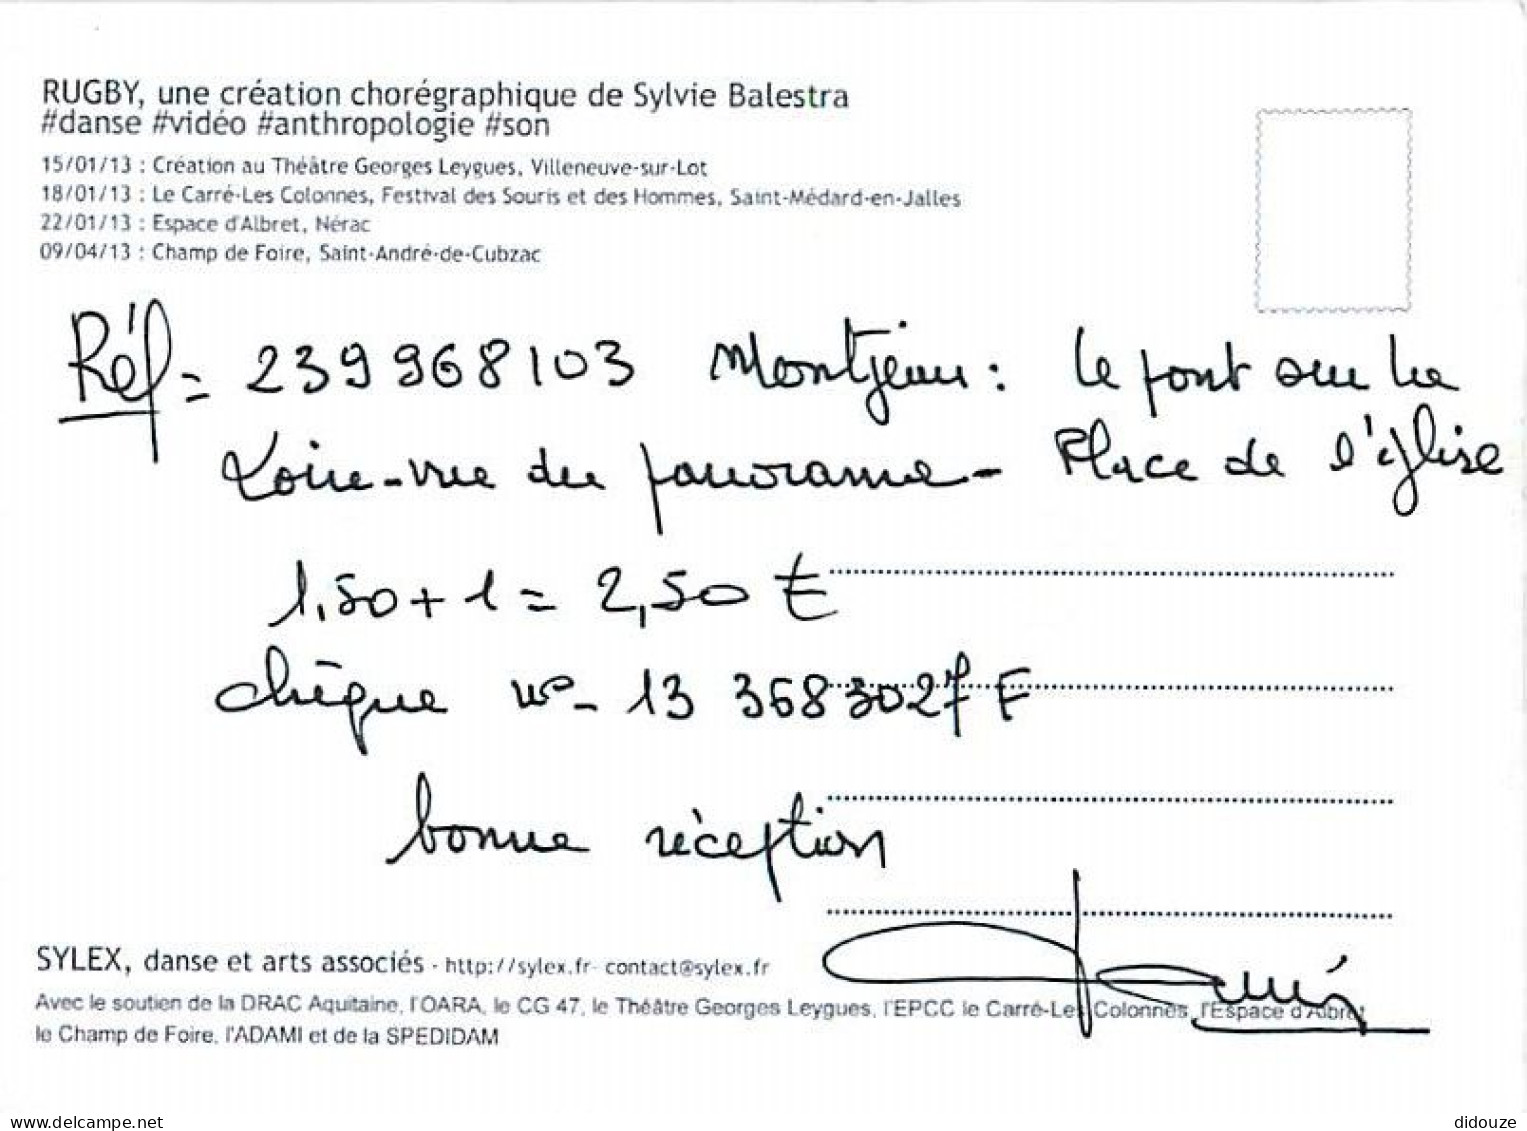 RUGBY, une création chorégraphique de Sylvie Balestra
#danse #vidéo #anthropologie #son
15/01/13 : Création au Théâtre Georges Leygues, Villeneuve-sur-Lot
18/01/13 : Le Carré-Les Colonnes, Festival des Souris et des Hommes, Saint-Médard-en-Jalles
22/01/13 : Espace d'Albret, Nérac
09/04/13 : Champ de Foire, Saint-André-de-Cubzac
Réf = 239968103 Montjean : le pont sur la
Loire - vue du panorama - Place de l'église
1,50 + 1 = 2,50 €
chèque n° - 13 3683027 F
bonne réception
SYLEX, danse et arts associés - http://sylex.fr- contact@sylex.fr
Avec le soutien de la DRAC Aquitaine, l'OARA, le CG 47, le Théâtre Georges Leygues, l'EPCC le Carré-Les Colonnes, l'Espace d'Albret
le Champ de Foire, l'ADAMI et de la SPEDIDAM
delcampe.net
didouze